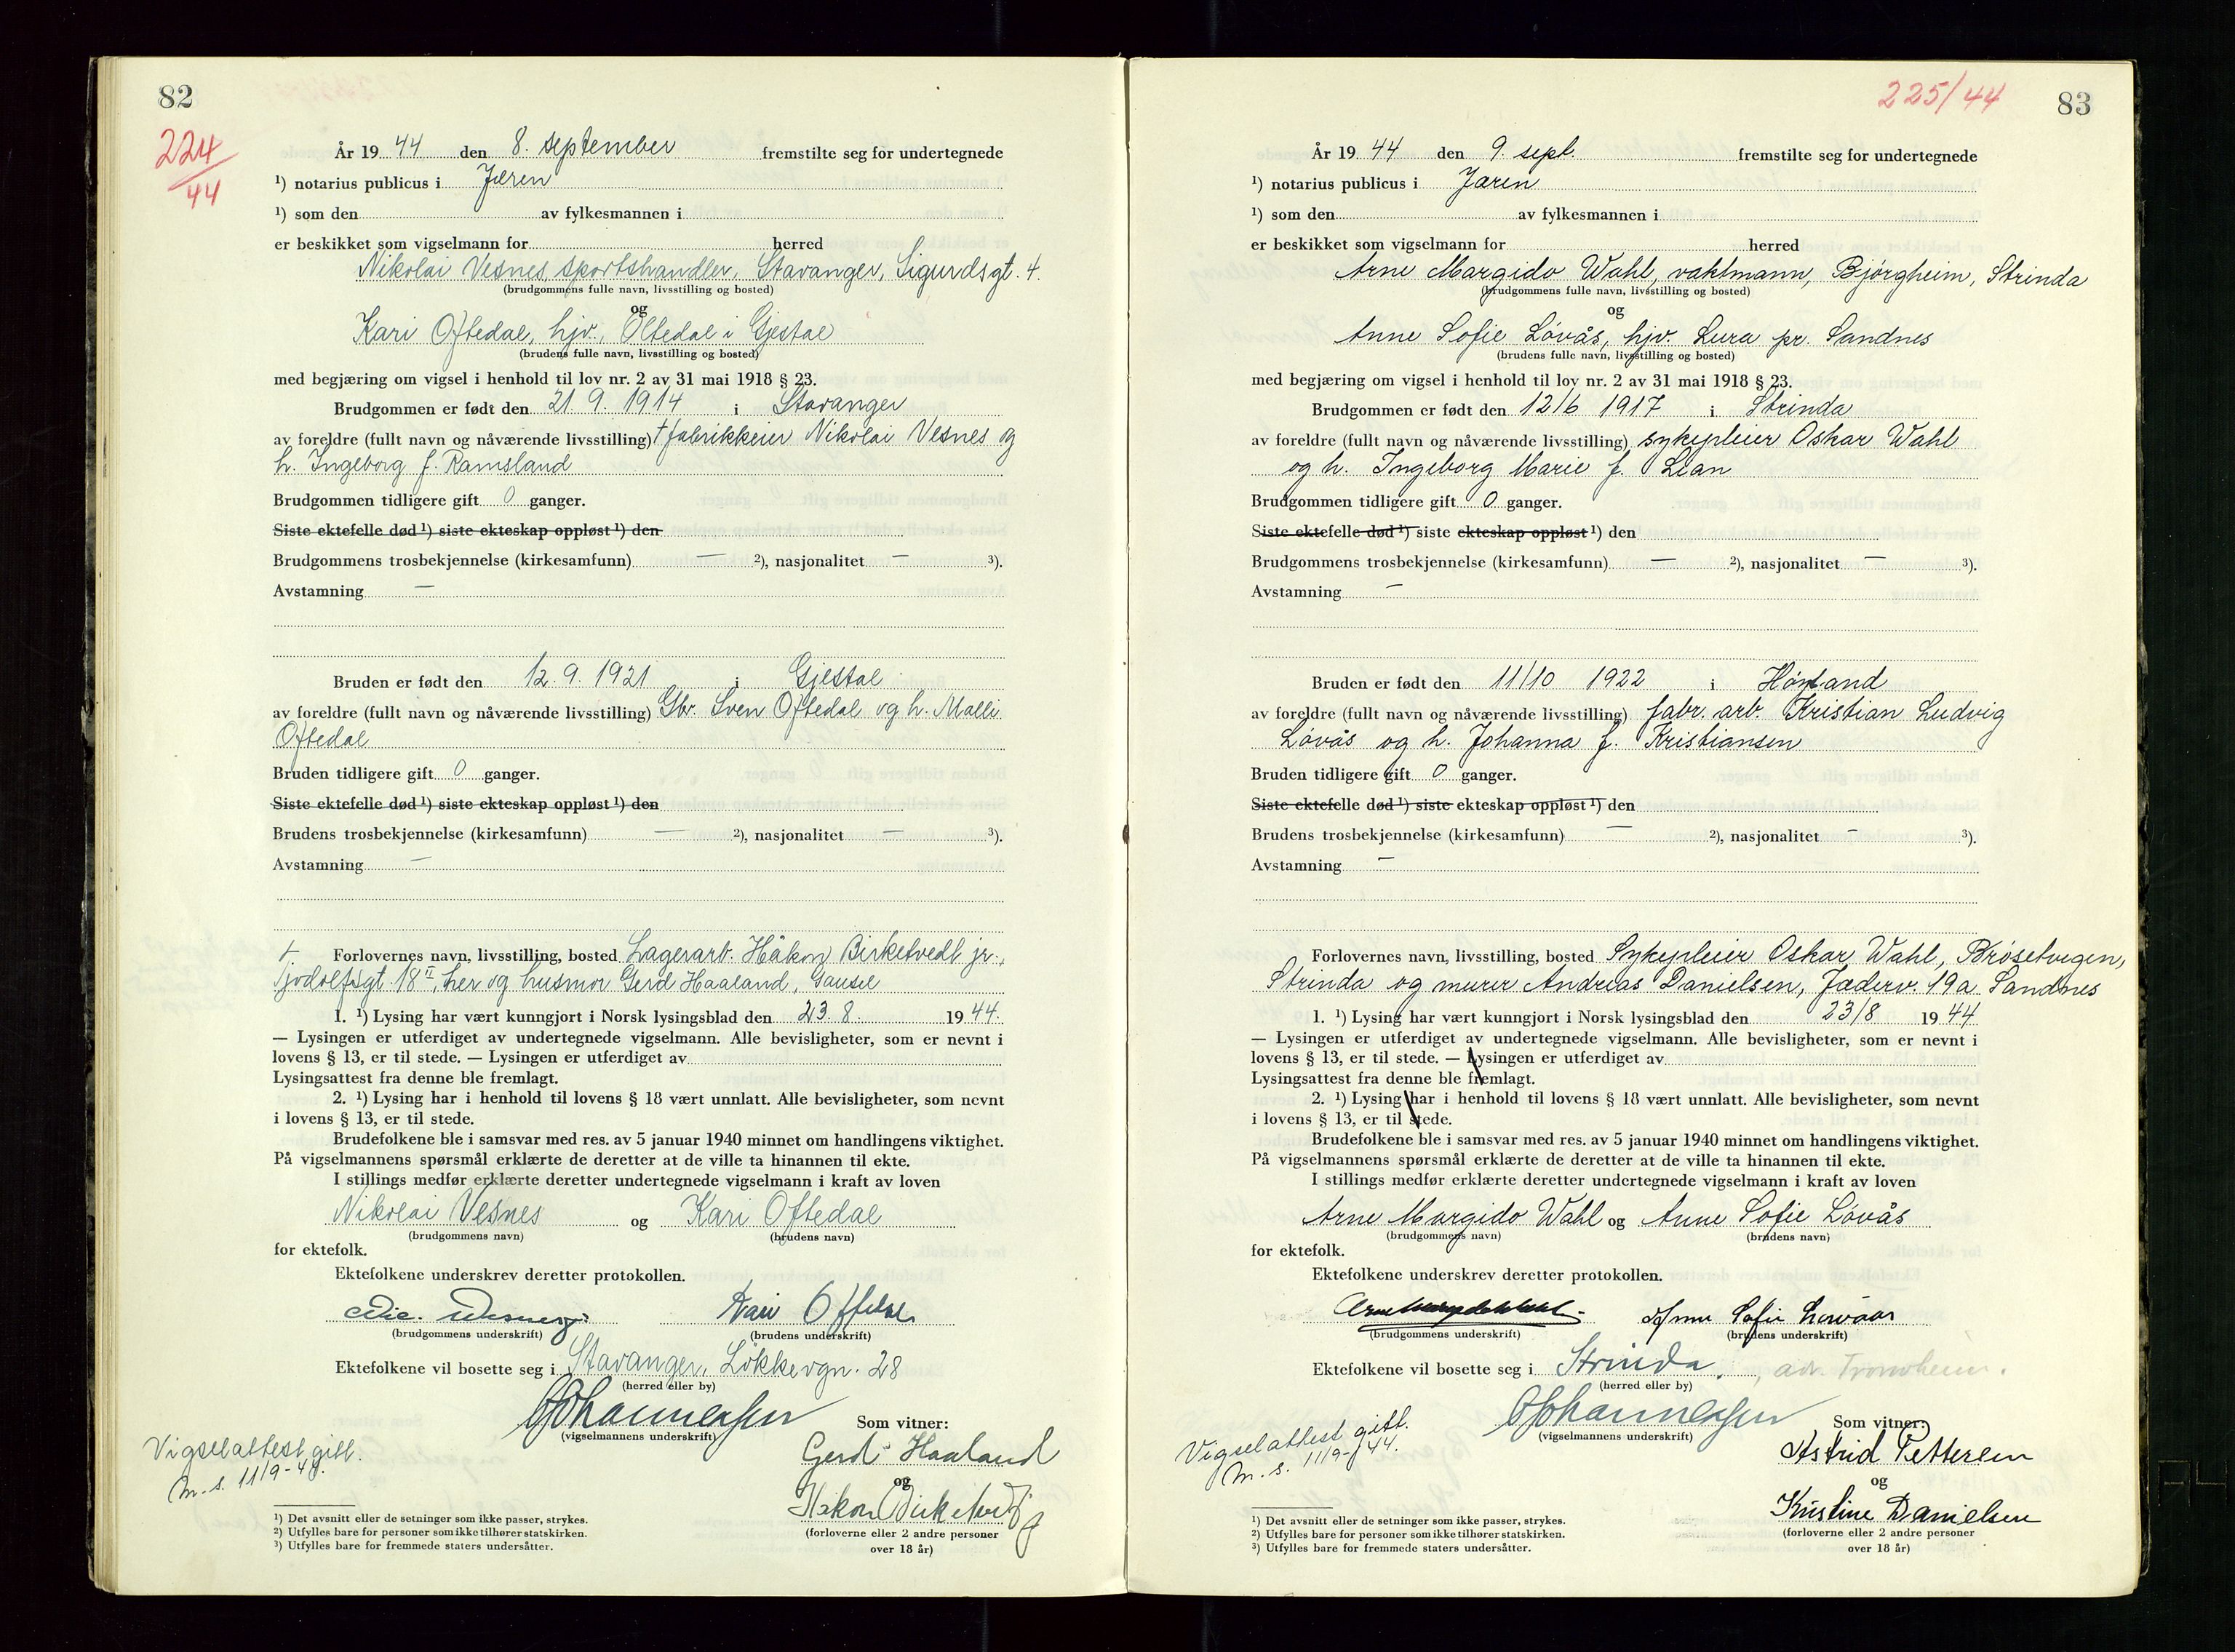 82
224
44
År 1944 den 8. september fremstilte seg for undertegnede
¹) notarius publicus i Jæren
¹) som den av fylkesmannen i
er beskikket som vigselmann for herred
Nikolai Vesnes, sportshandler, Stavanger, Sigurdsgt. 4.
(brudgommens fulle navn, livsstilling og bosted)
og
Kari Oftedal, hjv., Oltedal i Gjestal
(brudens fulle navn, livsstilling og bosted)
med begjæring om vigsel i henhold til lov nr. 2 av 31 mai 1918 § 23.
Brudgommen er født den 21 9. 1914 i Stavanger
av foreldre (fullt navn og nåværende livsstilling) † fabrikkeier Nikolai Vesnes og
h. Ingeborg f. Ramsland
Brudgommen tidligere gift 0 ganger.
Siste ektefelle død ¹) siste ekteskap oppløst ¹) den
Brudgommens trosbekjennelse (kirkesamfunn) — ²), nasjonalitet — ³).
Avstamning —
Bruden er født den 12. 9. 1921 i Gjestal
av foreldre (fullt navn og nåværende livsstilling) Gbr. Sven Oftedal og h. Malli
Oftedal
Bruden tidligere gift 0 ganger.
Siste ektefelle død ¹) siste ekteskap oppløst ¹) den
Brudens trosbekjennelse (kirkesamfunn) — ²), nasjonalitet — ³).
Avstamning —
Forlovernes navn, livsstilling, bosted Lagerarb. Håkon Birketvedt jr.,
Tjodolfsgt 18 II, her og husmor Gerd Haaland, Gausel
1. ¹) Lysing har vært kunngjort i Norsk lysingsblad den 23. 8. 1944.
— Lysingen er utferdiget av undertegnede vigselmann. Alle bevisligheter, som er nevnt i
lovens § 13, er til stede. — Lysingen er utferdiget av
Lysingsattest fra denne ble fremlagt.
2. ¹) Lysing har i henhold til lovens § 18 vært unnlatt. Alle bevisligheter, som nevnt
i lovens § 13, er til stede.
Brudefolkene ble i samsvar med res. av 5 januar 1940 minnet om handlingens viktighet.
På vigselmannens spørsmål erklærte de deretter at de ville ta hinannen til ekte.
I stillings medfør erklærte deretter undertegnede vigselmann i kraft av loven
Nikolai Vesnes og Kari Oftedal
(brudgommens navn) (brudens navn)
for ektefolk.
Ektefolkene underskrev deretter protokollen.
Kari Oftedal
(brudgommens underskrift) (brudens underskrift)
Ektefolkene vil bosette seg i Stavanger, Løkkevgn. 28
(herred eller by)
Johannessen
(vigselmannens underskrift)
Som vitner:
Vigselattest gitt.
m. s. 11/9-44.
Gerd Haaland
og
Håkon Birketvedt jr
(forloverne eller 2 andre personer
over 18 år)
¹) Det avsnitt eller de setninger som ikke passer, strykes.
²) Utfylles bare for personer som ikke tilhører statskirken.
³) Utfylles bare for fremmede staters undersåtter.
225/44
83
År 1944 den 9. sept. fremstilte seg for undertegnede
¹) notarius publicus i Jæren
¹) som den av fylkesmannen i
er beskikket som vigselmann for herred
Arne Margido Wahl, vaktmann, Bjørgheim, Strinda
(brudgommens fulle navn, livsstilling og bosted)
og
Anne Sofie Løvås, hjv. Lura pr. Sandnes
(brudens fulle navn, livsstilling og bosted)
med begjæring om vigsel i henhold til lov nr. 2 av 31 mai 1918 § 23.
Brudgommen er født den 12/6 1917 i Strinda
av foreldre (fullt navn og nåværende livsstilling) sykepleier Oskar Wahl
og h. Ingeborg Marie f. Lian
Brudgommen tidligere gift 0 ganger.
Siste ektefelle død ¹) siste ekteskap oppløst ¹) den
Brudgommens trosbekjennelse (kirkesamfunn) — ²), nasjonalitet — ³).
Avstamning —
Bruden er født den 11/10 1922 i Høyland
av foreldre (fullt navn og nåværende livsstilling) fabr. arb. Kristian Ludvig
Løvås og h. Johanna f. Kristiansen
Bruden tidligere gift 0 ganger.
Siste ektefelle død ¹) siste ekteskap oppløst ¹) den
Brudens trosbekjennelse (kirkesamfunn) — ²), nasjonalitet — ³).
Avstamning —
Forlovernes navn, livsstilling, bosted Sykepleier Oskar Wahl, Brøsetvegen,
Strinda og murer Andreas Danielsen, Jæderv. 19a Sandnes
1. ¹) Lysing har vært kunngjort i Norsk lysingsblad den 23/8 1944
— Lysingen er utferdiget av undertegnede vigselmann. Alle bevisligheter, som er nevnt i
lovens § 13, er til stede. — Lysingen er utferdiget av
Lysingsattest fra denne ble fremlagt.
2. ¹) Lysing har i henhold til lovens § 18 vært unnlatt. Alle bevisligheter, som nevnt
i lovens § 13, er til stede.
Brudefolkene ble i samsvar med res. av 5 januar 1940 minnet om handlingens viktighet.
På vigselmannens spørsmål erklærte de deretter at de ville ta hinannen til ekte.
I stillings medfør erklærte deretter undertegnede vigselmann i kraft av loven
Arne Margido Wahl og Anne Sofie Løvås
(brudgommens navn) (brudens navn)
for ektefolk.
Ektefolkene underskrev deretter protokollen.
Arne Margido Wahl Anne Sofie Løvaas
(brudgommens underskrift) (brudens underskrift)
Ektefolkene vil bosette seg i Strinda, adr. Trondheim.
(herred eller by)
Johannessen
(vigselmannens underskrift)
Som vitner:
Vigselattest gitt.
m. s. 11/9-44.
Astrid Pettersen
og
Kristine Danielsen
(forloverne eller 2 andre personer
over 18 år)
¹) Det avsnitt eller de setninger som ikke passer, strykes.
²) Utfylles bare for personer som ikke tilhører statskirken.
³) Utfylles bare for fremmede staters undersåtter.